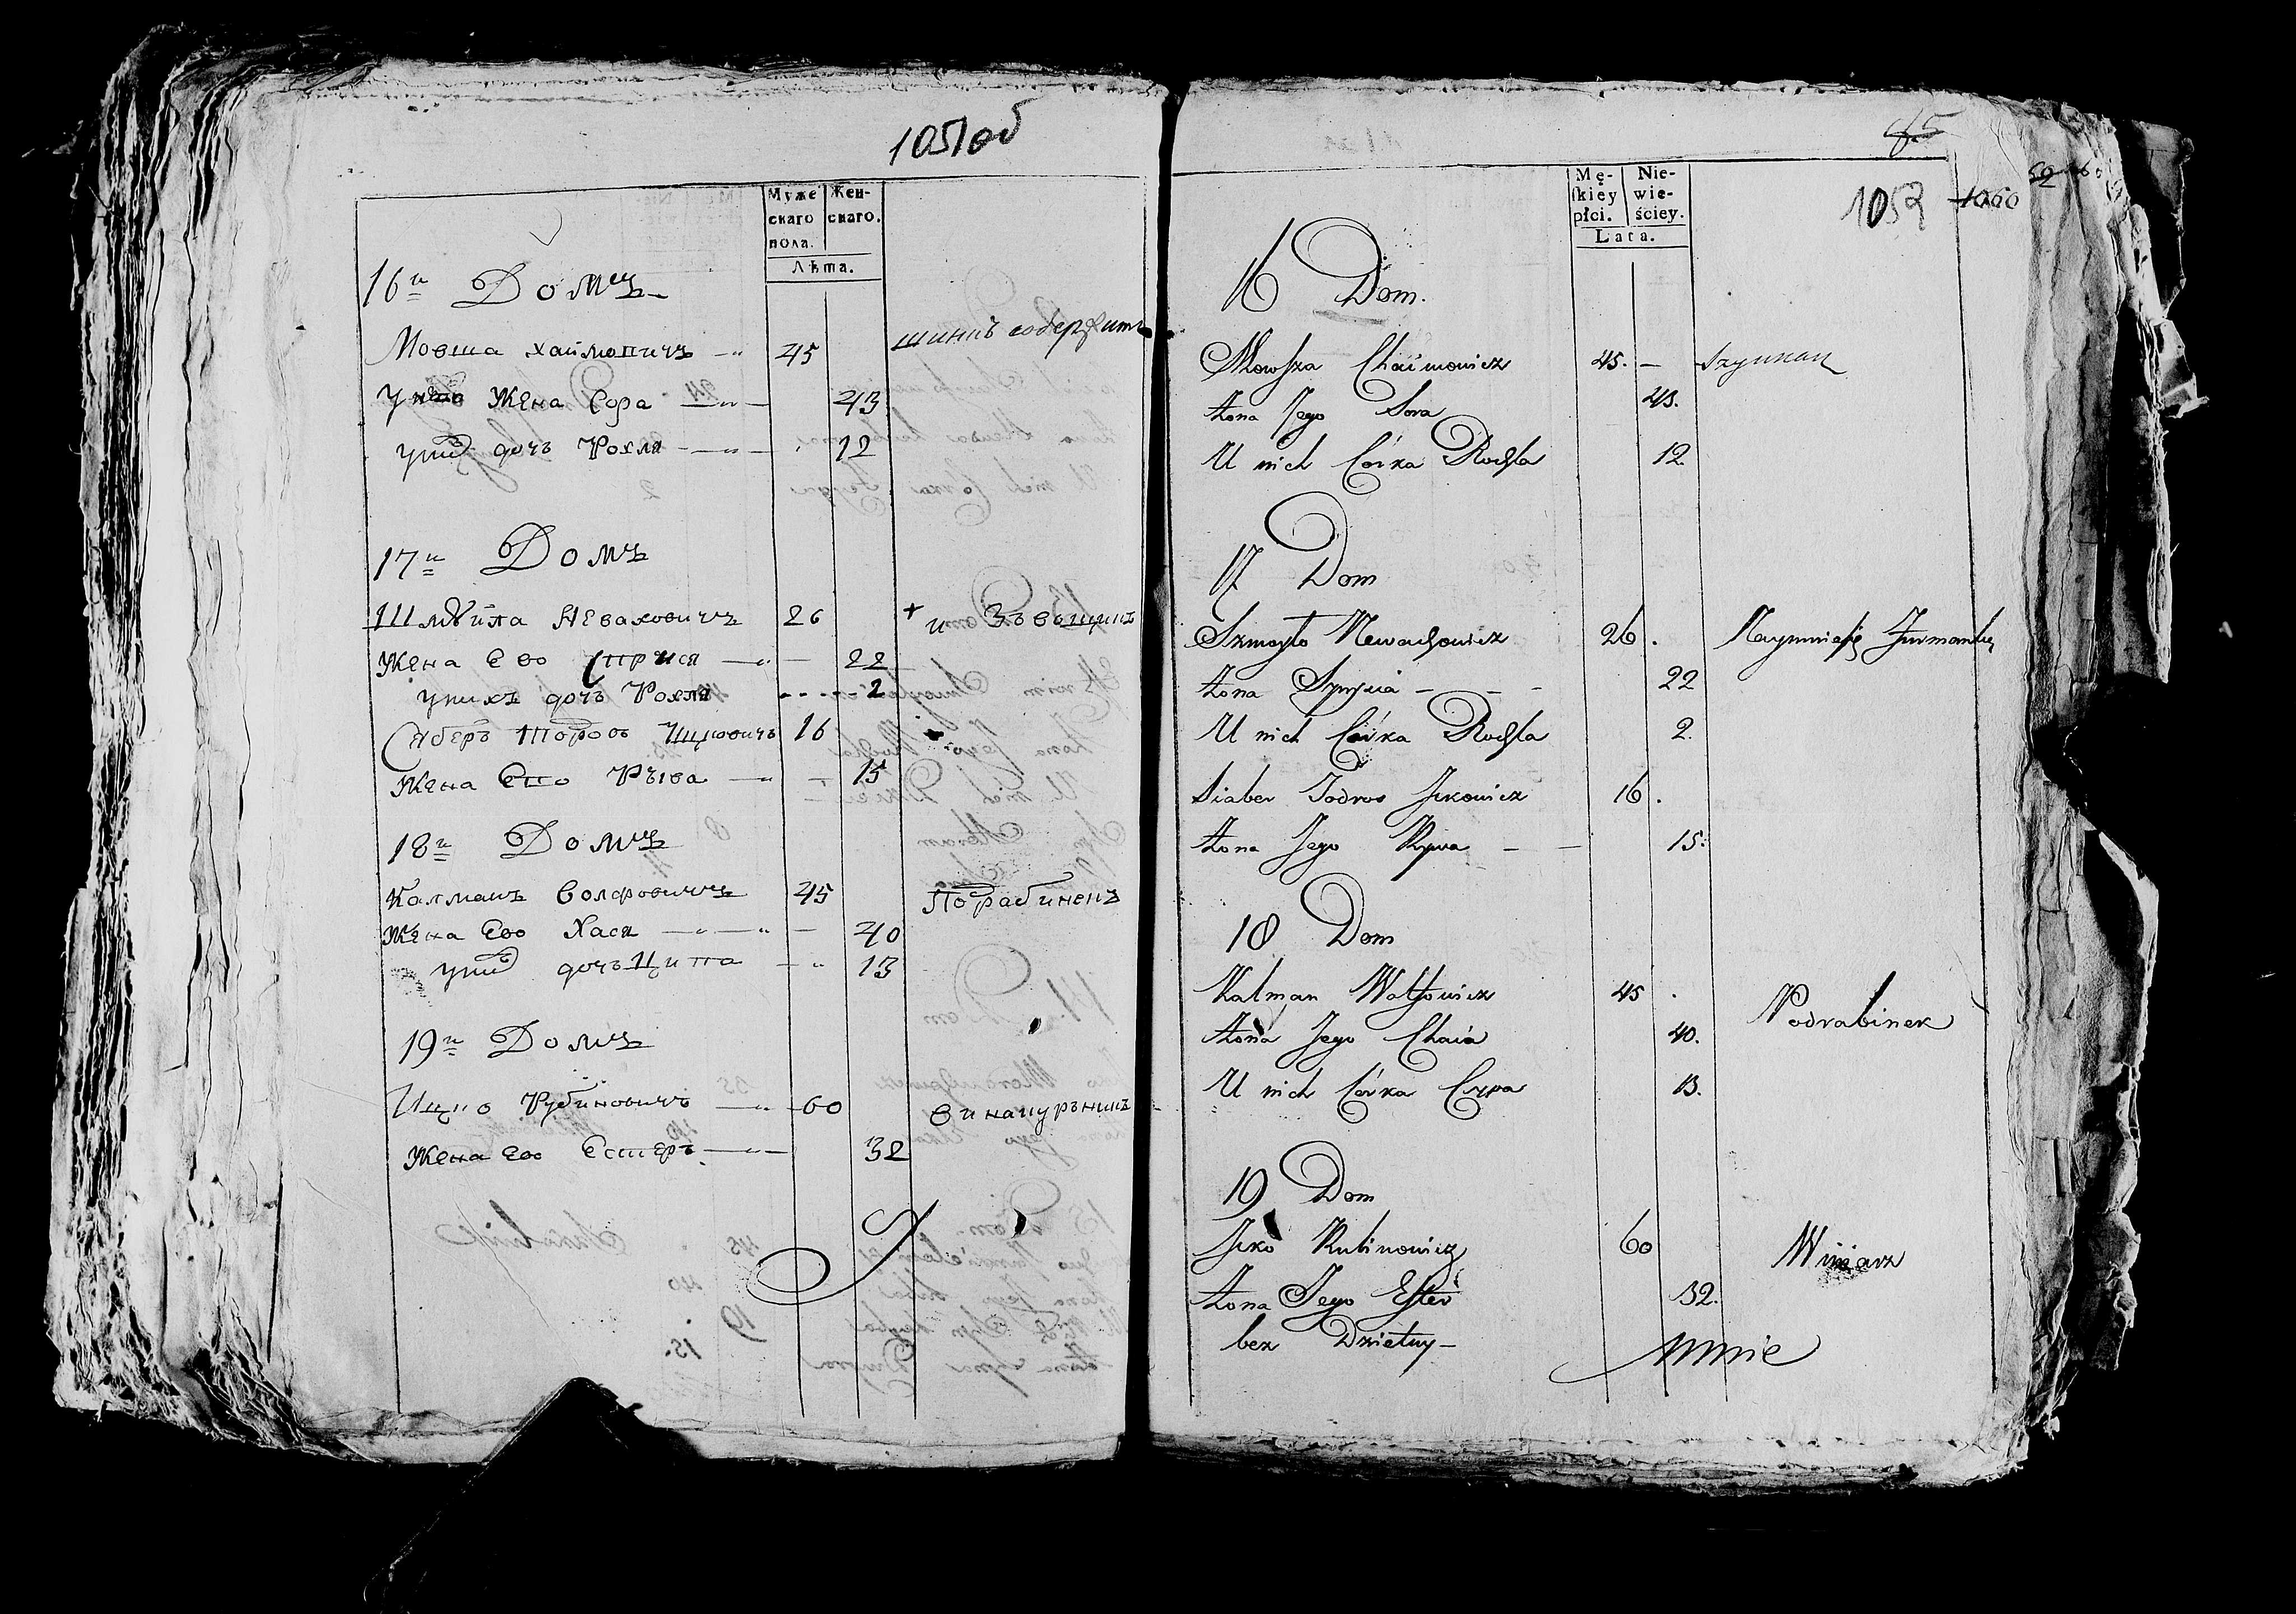 1051об
Муже
скаго
пола.
Жен-
скаго.
Лѣта.
16й Домъ
Мовша Хаймовичъ 45 шинкъ содержитъ
Жена Сора 43
дочь Рохля 12
17й Домъ
Шмуйла Неваховичъ 26 + и
Жена Ево 22
у нихъ дочь Рохля 2
Сяберъ Ицковичъ 16
Жена Ево Рыва 15
18й Домъ
Калманъ Волфовичъ 45 Подрабинекъ
Жена Ево Хася 40
дочь Ципа 13
19й Домъ
Ицко Рубиновичъ 60 винакурникъ
Жена Ево Естеръ 32
85
1052 1060
59
Mę-
skiey
płci.
Nie-
wie-
ściey.
Lata.
16 Dom.
Mowsza Chaimowicz 45. — Szynkarz
Żona Jego Sora 43.
U nich Córka Rochla 12.
17 Dom
Szmoyło Newachowicz 26.
Żona 22
U nich Córka Rochla 2.
Siaber Todros Jckowicz 16.
Żona Jego Rywa — — 15.
18 Dom
Kalman Wolfowicz 45. Podrabinek
Żona Jego Chaia 40.
U nich Córka Cypa 13.
19 Dom
Jcko Rubinowicz 60 Winiarz
Żona Jego Ester 32.
bez Dzietny —